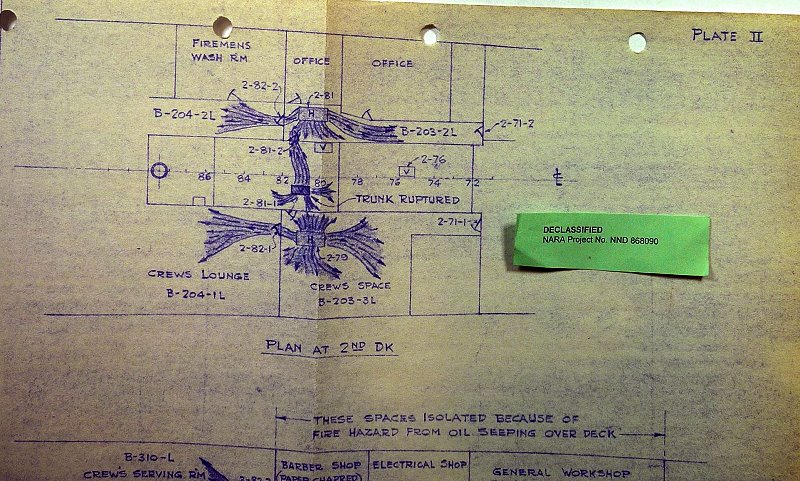 PLATE II
FIREMENS
WASH RM.
OFFICE
OFFICE
2-82-2
2-81
H
B-204-2L
B-203-2L
2-71-2
2-81-2
V
2-76
V
86 84 82 80 78 76 74 72
2-81-1
TRUNK RUPTURED
2-71-1
DECLASSIFIED
NARA Project No. NND 868090
2-82-1
H
2-79
CREWS LOUNGE
B-204-1L
CREWS SPACE
B-203-3L
PLAN AT 2ND DK
THESE SPACES ISOLATED BECAUSE OF
FIRE HAZARD FROM OIL SEEPING OVER DECK
B-310-L
CREW'S SERVING RM
BARBER SHOP
ELECTRICAL SHOP
GENERAL WORKSHOP